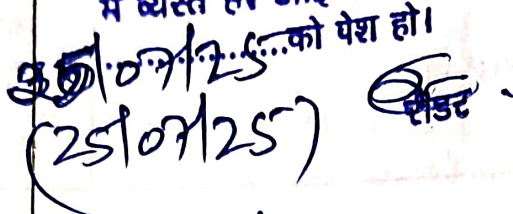 में व्यस्त
25/07/25 ...को पेश हो।
(25/07/25) रीडर